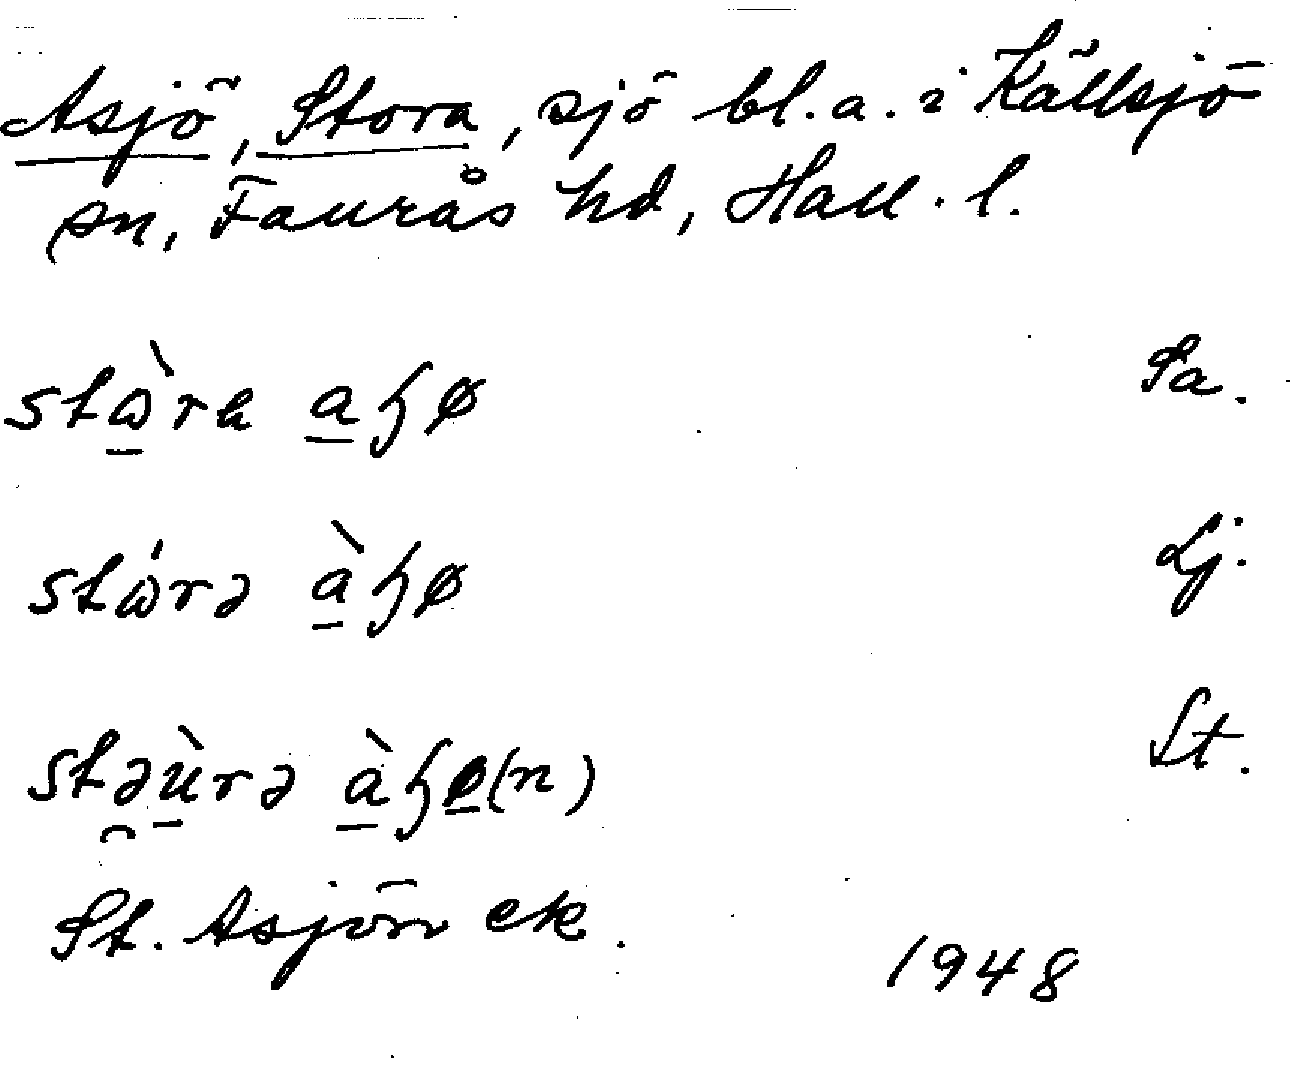 Asjö, Stora, sjö bl.a. i Källsjö
sn, Faurås hd, Hall. l.
stὼ̱ra a̱ɧø Sa.
stώrə à̱ɧø Lj.
stə̯ù̱rə à̱ɧø̱(n) St.
St. Asjön ek.
1948